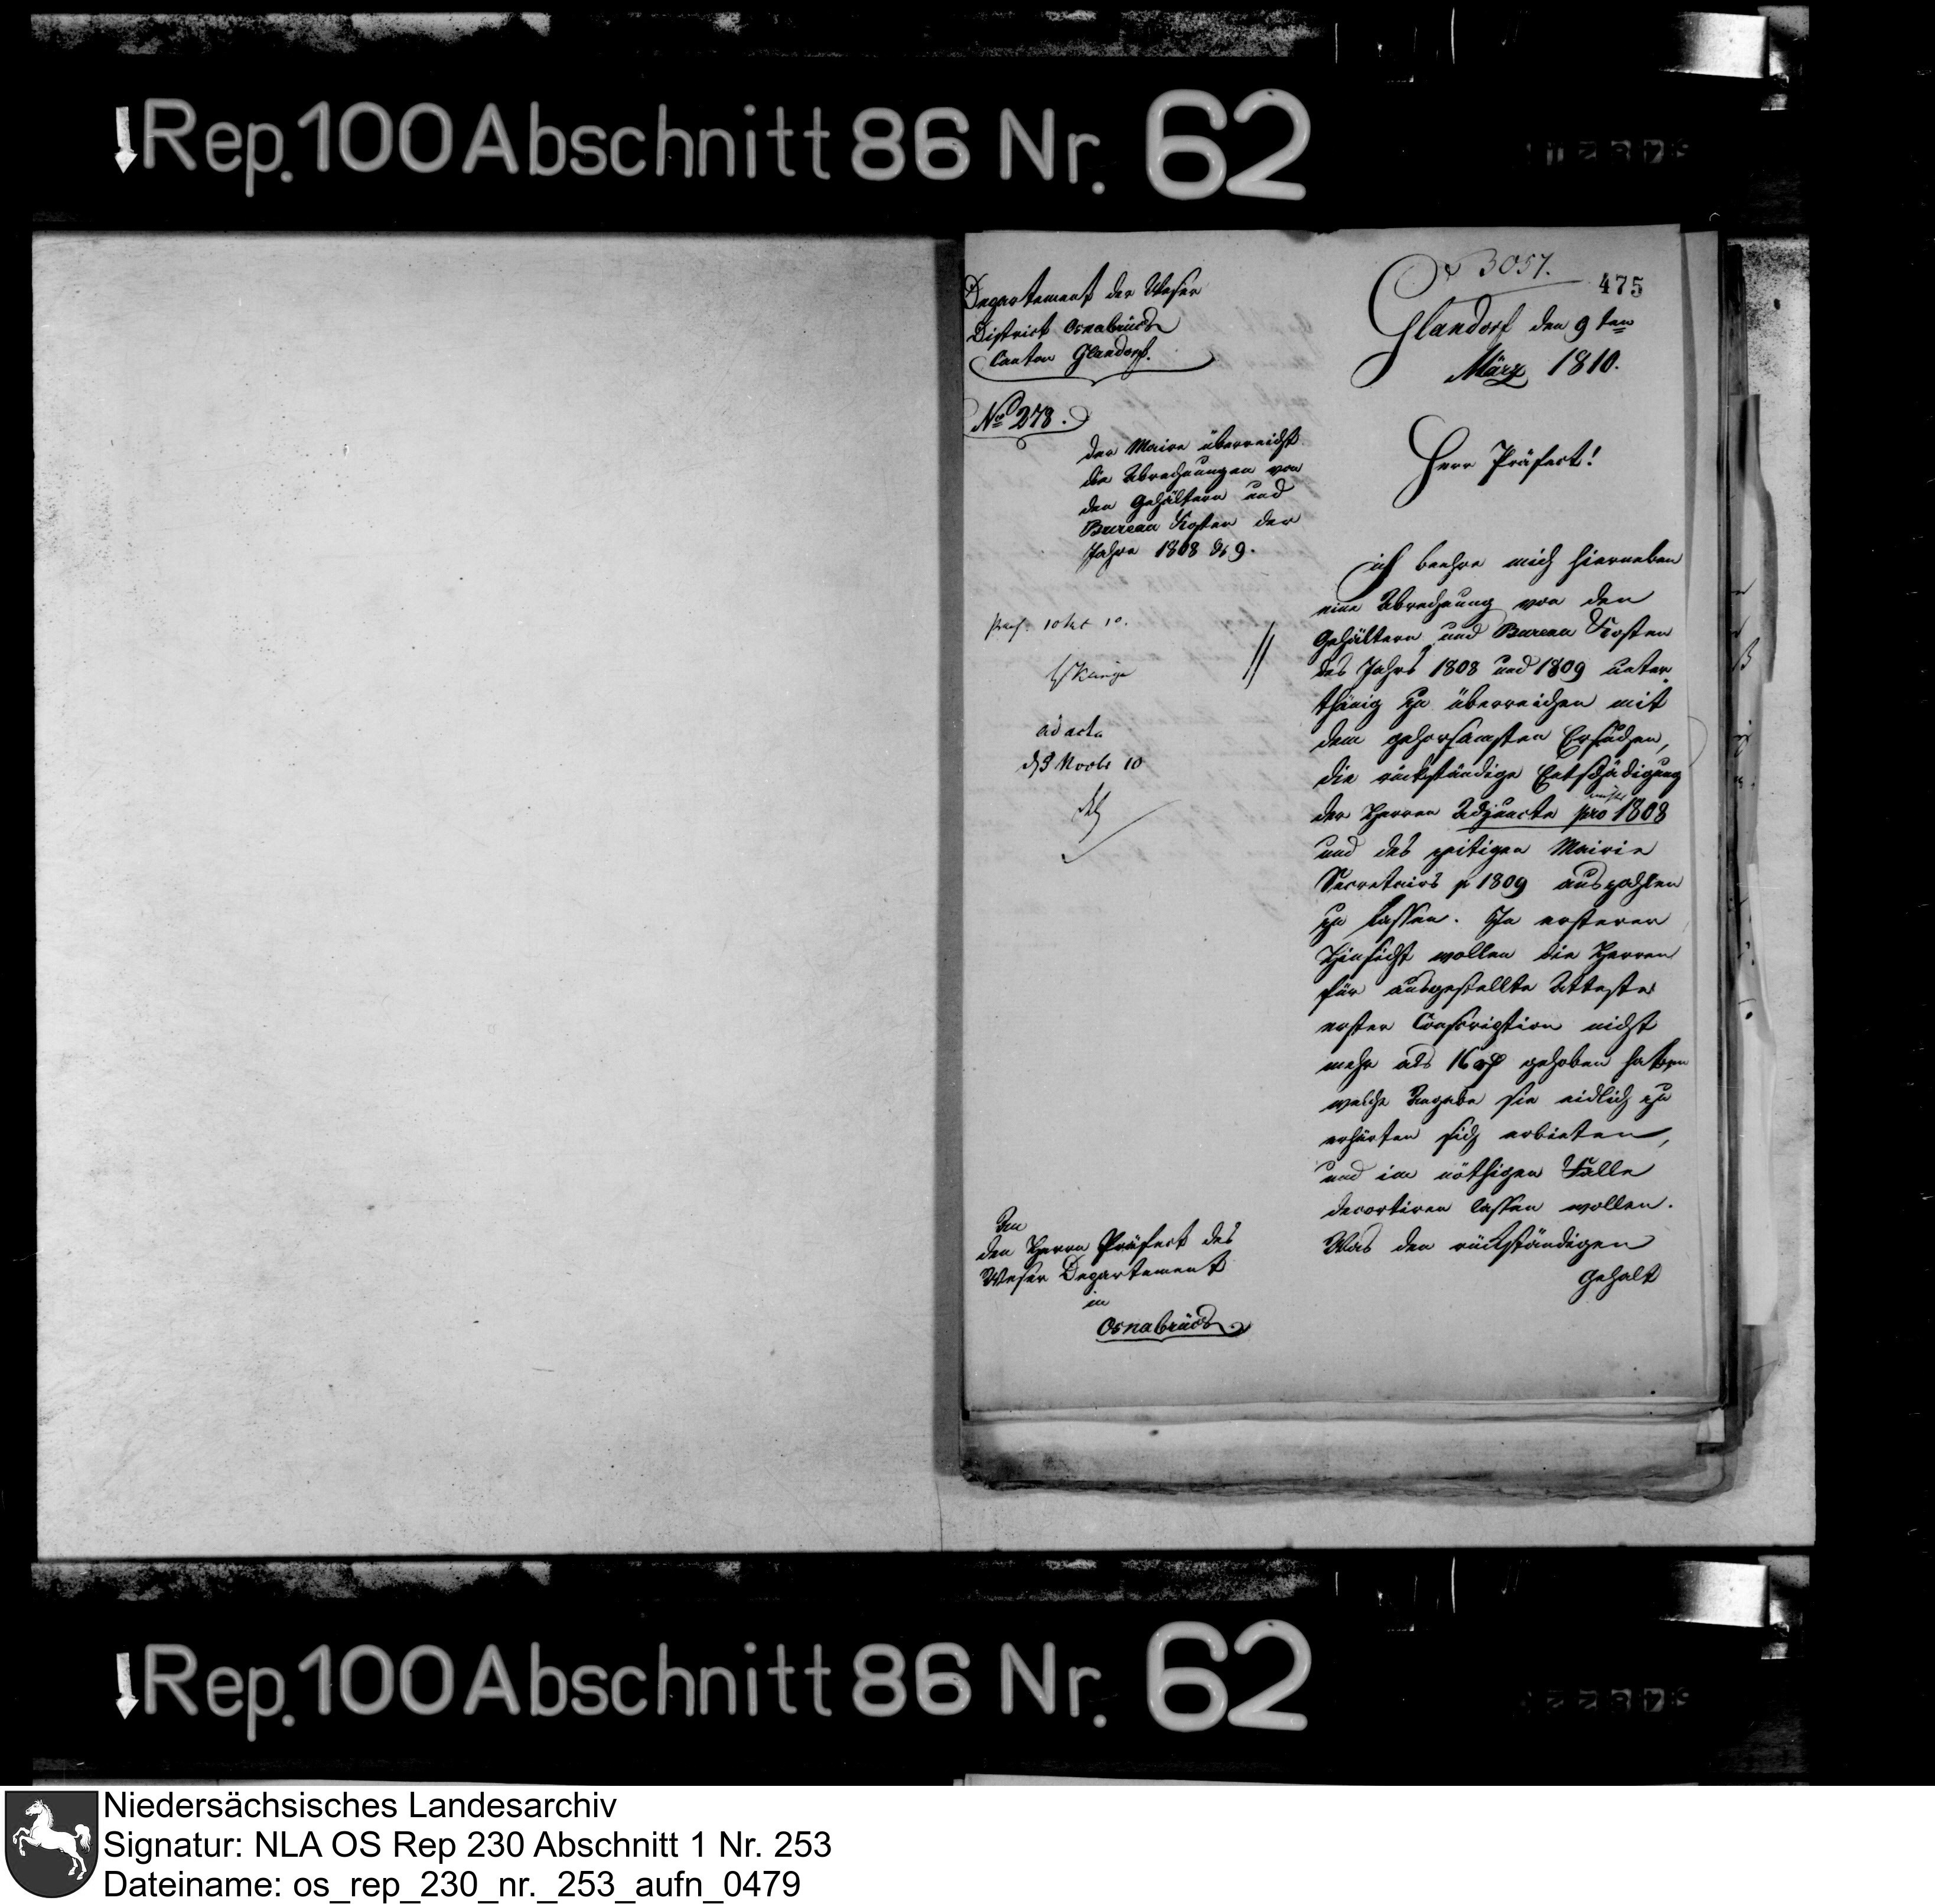 Rep. 100 Abschnitt 86 Nr. 62
3057.
475
Departement der Weser
District Osnabrück
Canton Glandorf.
No 278.
Der Maire überreicht
die Abrechnungen von
den Gehältern und
Bureau Kosten der
Jahre 1808 & 9.
ad acta
d 3 Novbr 10
An
den Herrn Präfect des
Weser Departement
in
Osnabrück
Glandorf den 9ten
März 1810.
Herr Präfect!
ich beehre mich hierneben
eine Abrechnung von den
Gehältern und Bureau Kosten
des Jahrs 1808 und 1809 unter
thänig zu überreichen mit
dem gehorsamsten Ersuchen,
die rückständige Entschädigung
der Herren Adjuncte pro 1808
und des zeitigen Mairie
Secretairs p 1809 auszahlen
zu lassen. In ersterer
Hinsicht wollen die Herren
für ausgestellte Atteste
erster Conscription nicht
mehr als 16 gehoben haben
welche Angabe sie eidlich zu
erhärten sich erbieten,
und im nöthigen Falle
decortiren lassen wollen.
Was den rückständigen
Gehalt
Rep. 100 Abschnitt 86 Nr. 62
Niedersächsisches Landesarchiv
Signatur: NLA OS Rep 230 Abschnitt 1 Nr. 253
Dateiname: os_rep_230_nr._253_aufn_0479